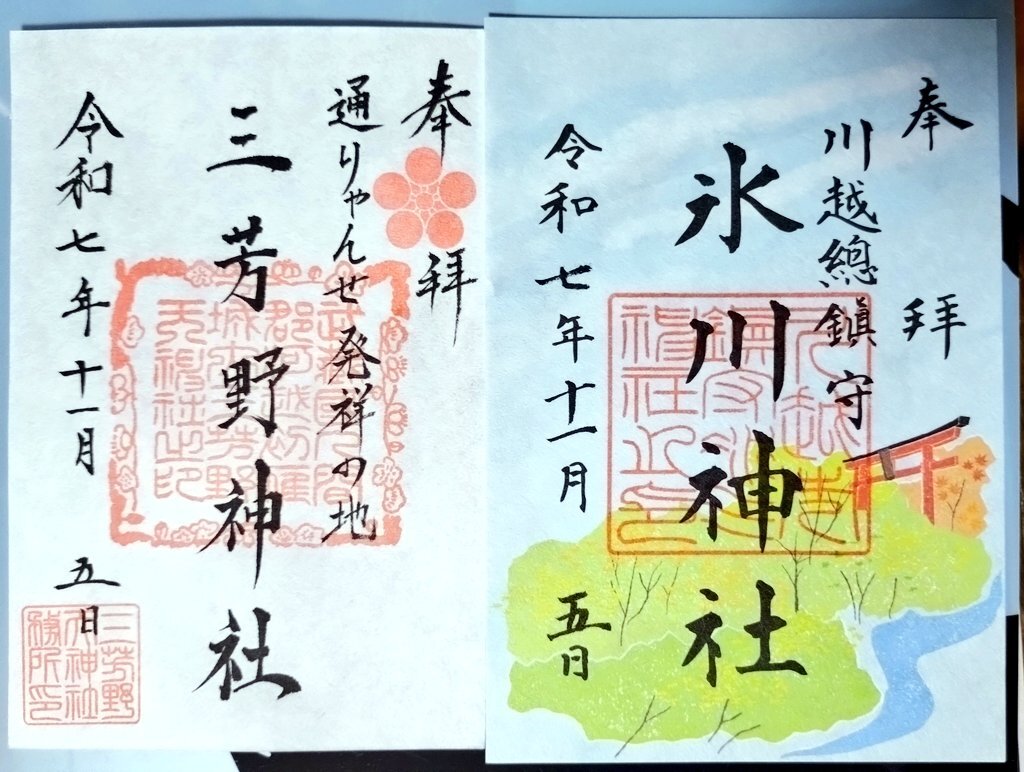 奉拝
川越總鎮守
氷川神社
令和七年十一月五日
奉拝
通りゃんせ発祥の地
三芳野神社
令和七年十一月五日
三芳野
天神社
務所印